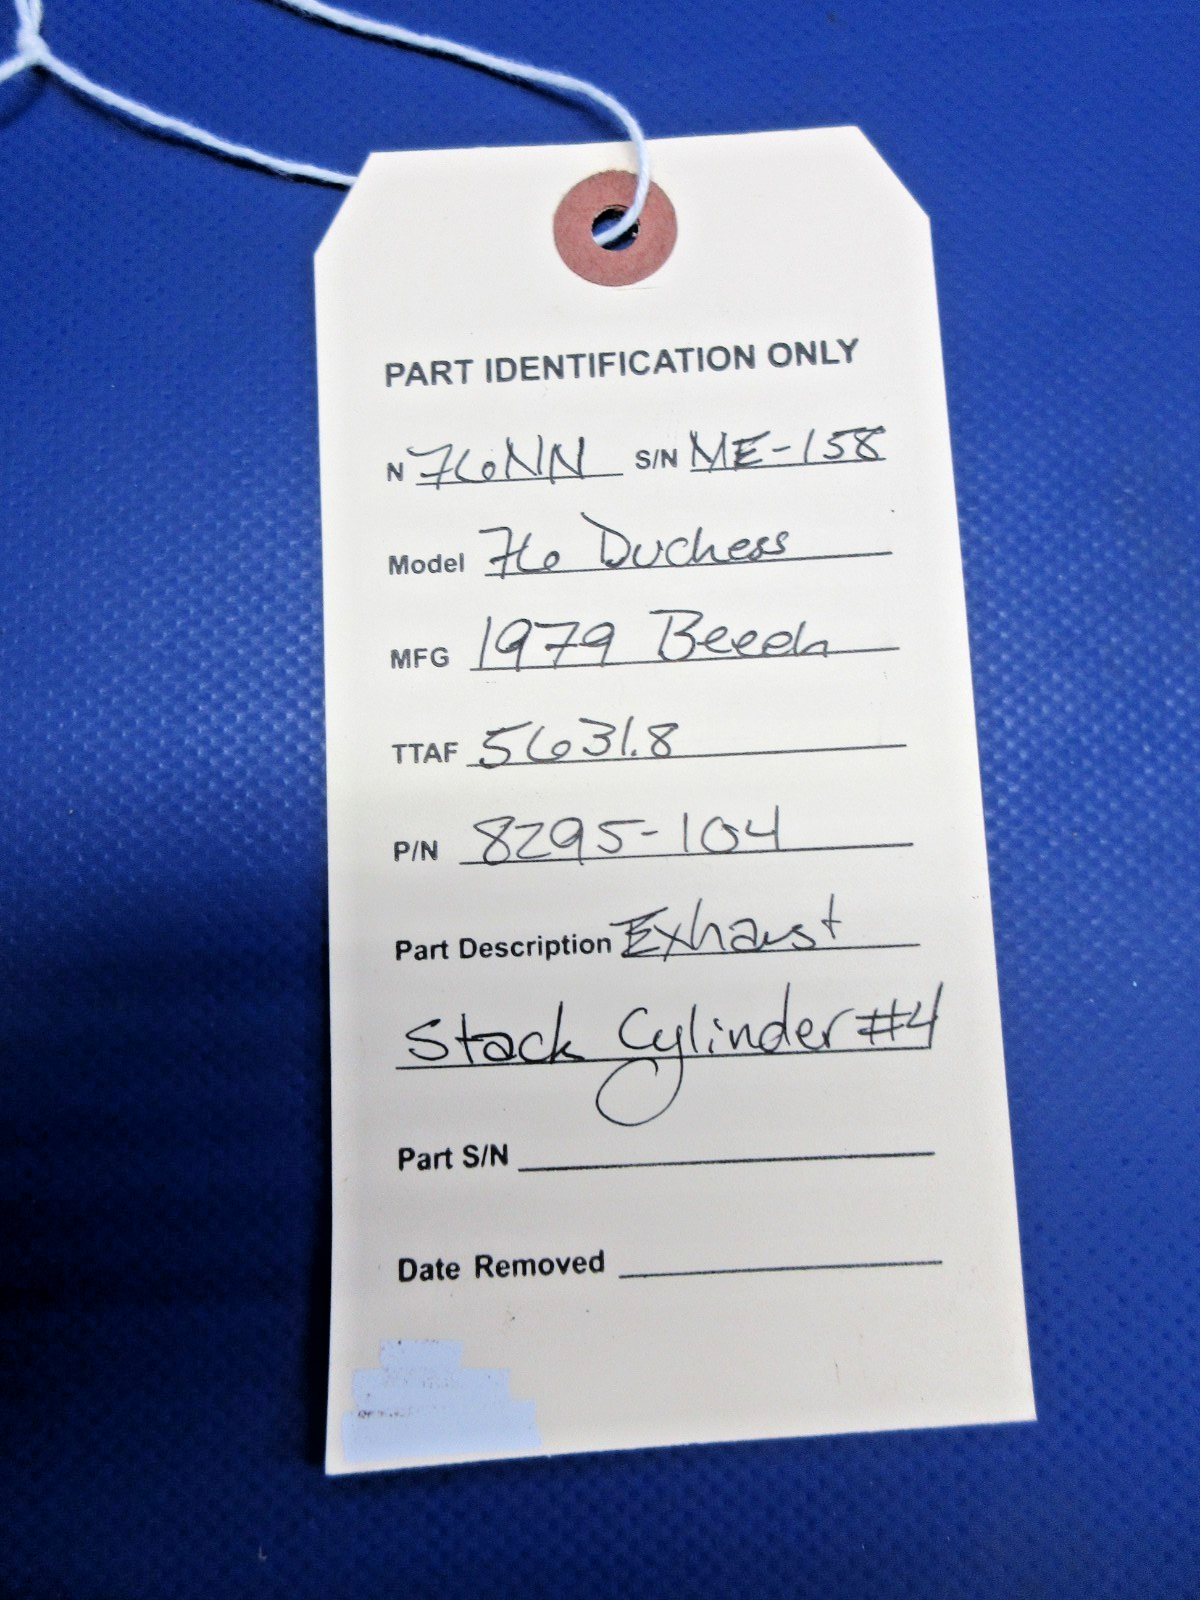 PART IDENTIFICATION ONLY
N 76NN S/N ME-158
Model 76 Duchess
MFG 1979 Beech
TTAF 5631.8
P/N 8295-104
Part Description Exhaust
Stack Cylinder #4
Part S/N
Date Removed